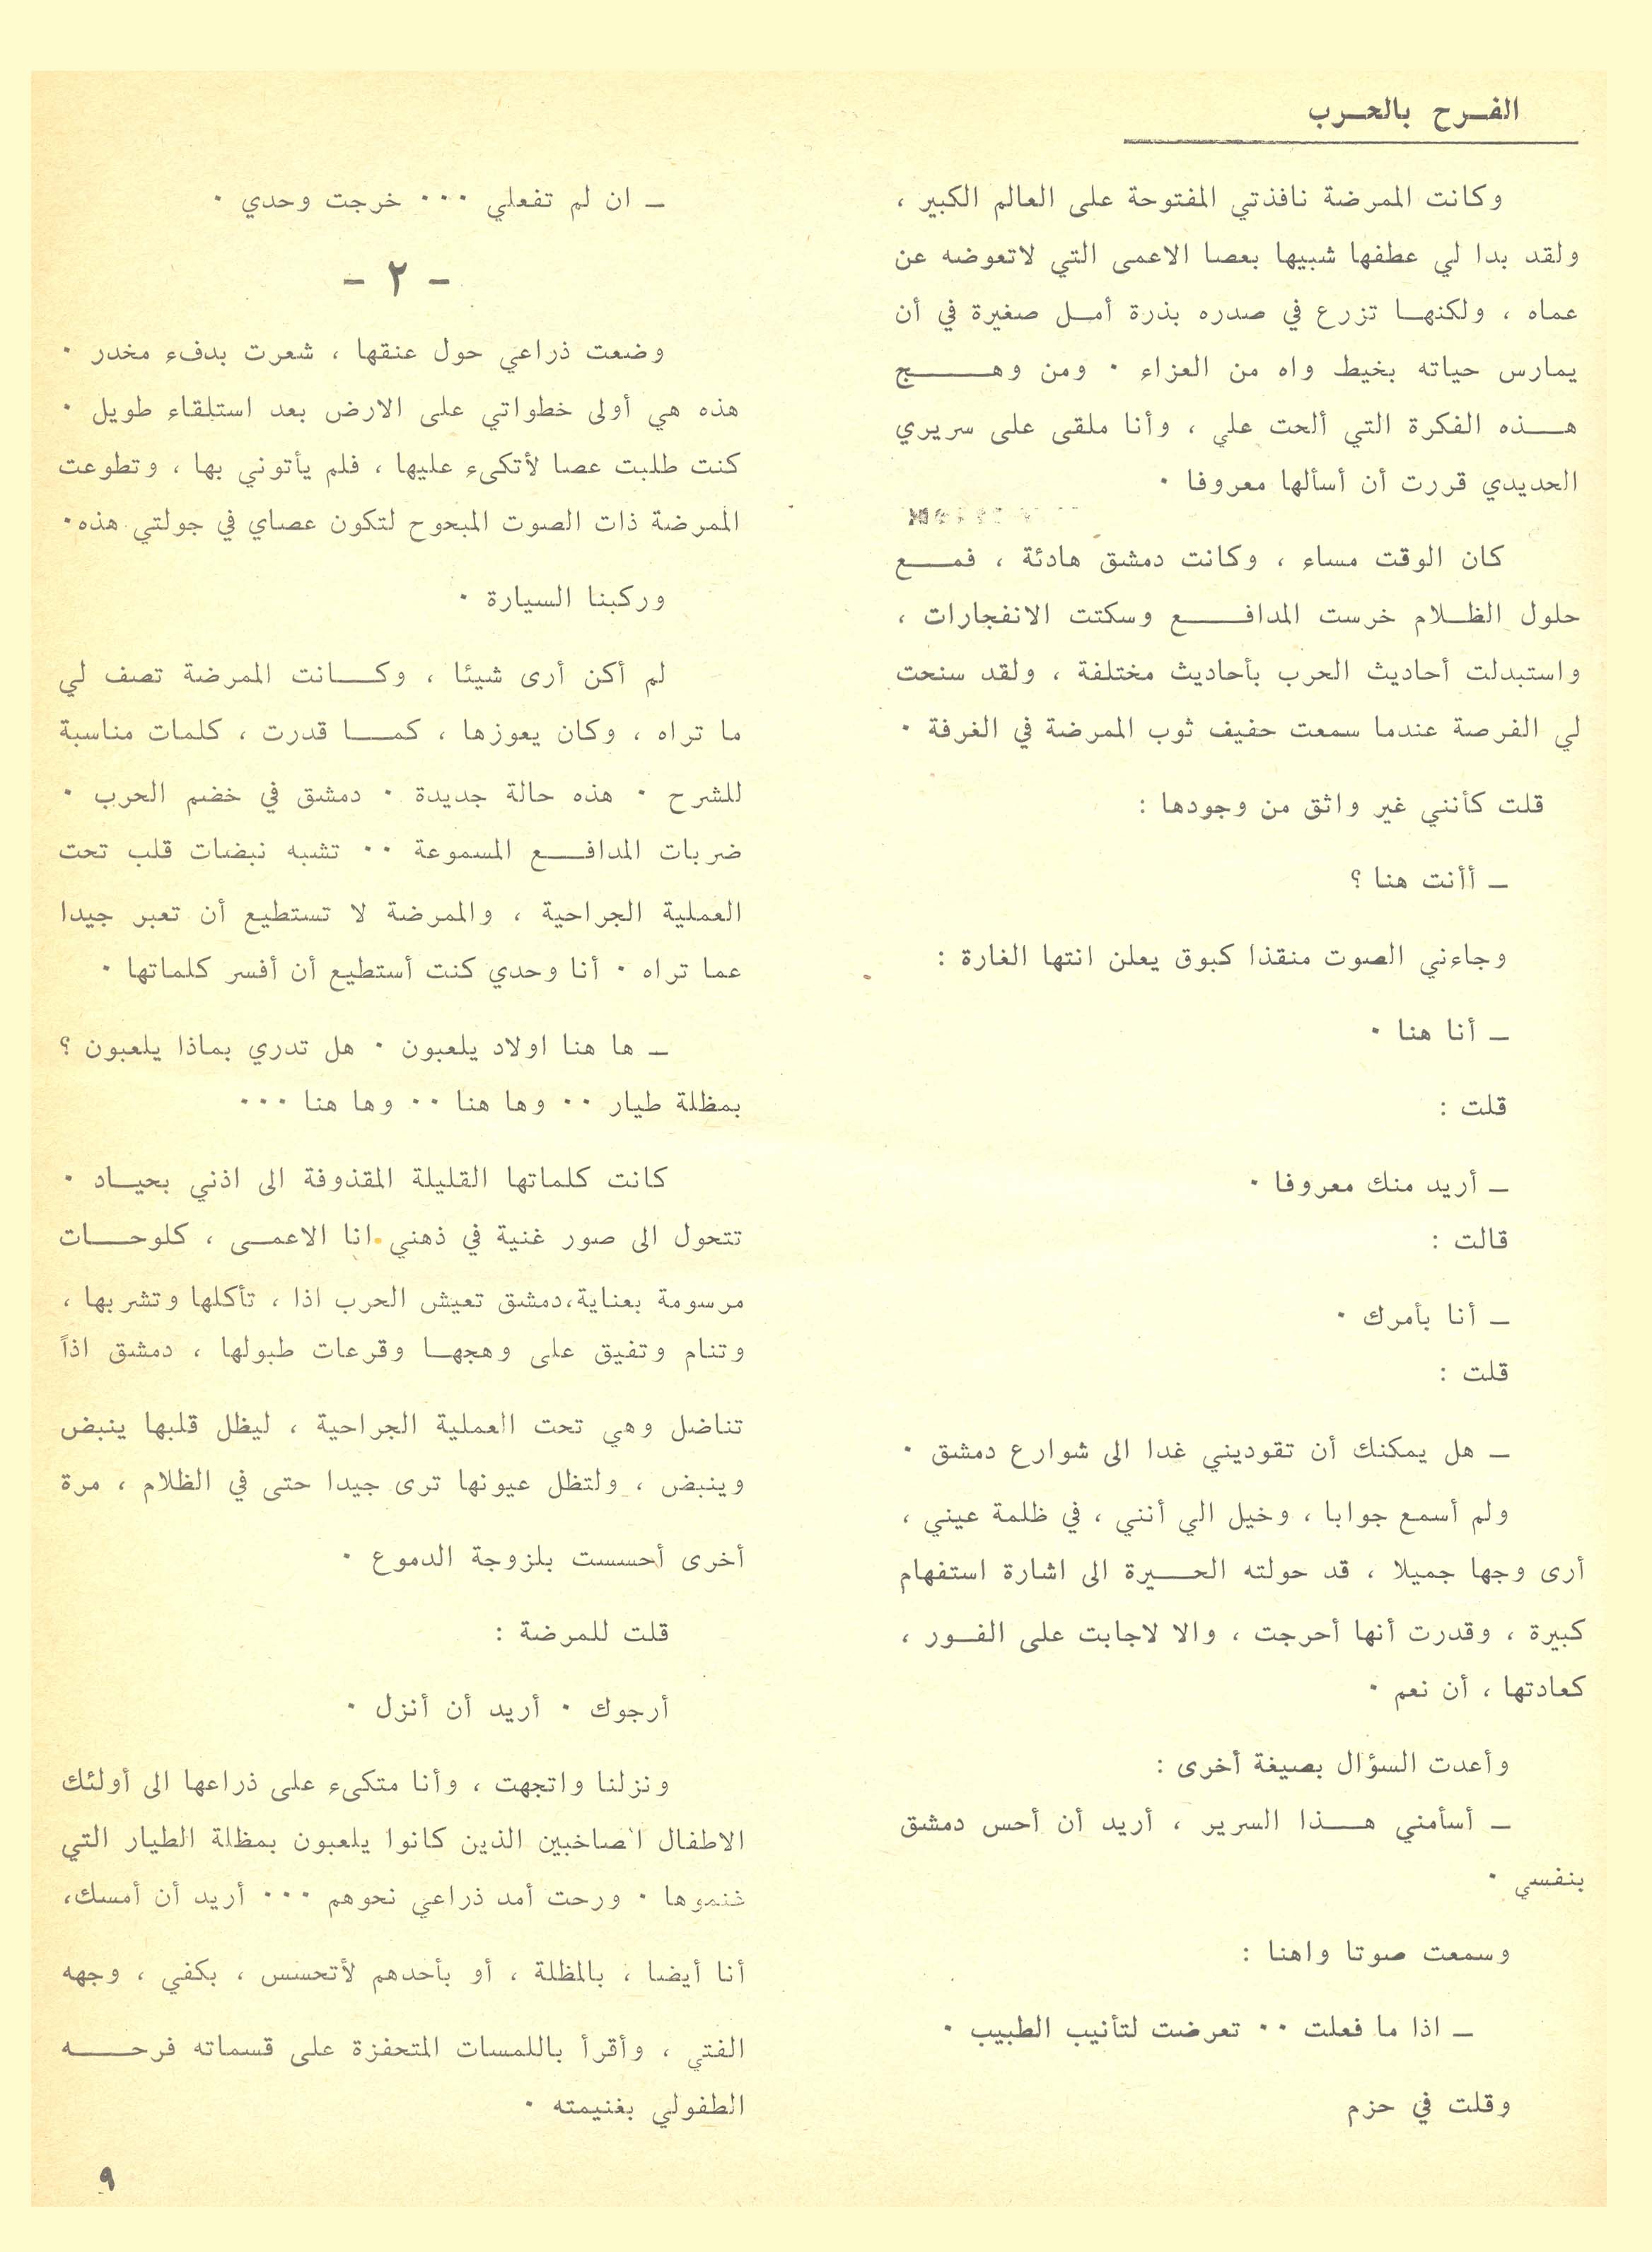 الفرح بالحرب
وكانت الممرضة نافذتي المفتوحة على العالم الكبير ،
ولقد بدا لي عطفها شبيها بعصا الاعمى التي لاتعوضه عن
عماه ، ولكنها تزرع في صدره بذرة أمل صغيرة في أن
يمارس حياته بخيط واه من العزاء . ومن وهج
هذه الفكرة التي ألحت علي ، وأنا ملقى على سريري
الحديدي قررت أن أسألها معروفا .
كان الوقت مساء ، وكانت دمشق هادئة ، فمع
حلول الظلام خرست المدافع وسكتت الانفجارات ،
واستبدلت أحاديث الحرب بأحاديث مختلفة ، ولقد سنحت
لي الفرصة عندما سمعت حفيف ثوب الممرضة في الغرفة .
قلت كأنني غير واثق من وجودها :
ـ أأنت هنا ؟
وجاءني الصوت منقذا كبوق يعلن انتها الغارة :
ـ أنا هنا .
قلت :
ـ أريد منك معروفا .
قالت :
ـ أنا بأمرك .
قلت :
ـ هل يمكنك أن تقوديني غدا الى شوارع دمشق .
ولم أسمع جوابا ، وخيل الي أنني ، في ظلمة عيني ،
أرى وجها جميلا ، قد حولته الحيرة الى اشارة استفهام
كبيرة ، وقدرت أنها أحرجت ، والا لاجابت على الفور ،
كعادتها ، أن نعم .
وأعدت السؤال بصيغة أخرى :
ـ أسأمني هذا السرير ، أريد أن أحس دمشق
بنفسي .
وسمعت صوتا واهنا :
ـ اذا ما فعلت .. تعرضت لتأنيب الطبيب .
وقلت في حزم
ـ ان لم تفعلي ... خرجت وحدي .
- ٢ -
وضعت ذراعي حول عنقها ، شعرت بدفء مخدر .
هذه هي أولى خطواتي على الارض بعد استلقاء طويل .
كنت طلبت عصا لأتكىء عليها ، فلم يأتوني بها ، وتطوعت
الممرضة ذات الصوت المبحوح لتكون عصاي في جولتي هذه.
وركبنا السيارة .
لم أكن أرى شيئا ، وكانت الممرضة تصف لي
ما تراه ، وكان يعوزها ، كما قدرت ، كلمات مناسبة
للشرح . هذه حالة جديدة . دمشق في خضم الحرب .
ضربات المدافع المسموعة .. تشبه نبضات قلب تحت
العملية الجراحية ، والممرضة لا تستطيع أن تعبر جيدا
عما تراه . أنا وحدي كنت أستطيع أن أفسر كلماتها .
ـ ها هنا اولاد يلعبون . هل تدري بماذا يلعبون ؟
بمظلة طيار .. وها هنا .. وها هنا ...
كانت كلماتها القليلة المقذوفة الى اذني بحياد .
تتحول الى صور غنية في ذهني انا الاعمى ، كلوحات
مرسومة بعناية،دمشق تعيش الحرب اذا ، تأكلها وتشربها ،
وتنام وتفيق على وهجها وقرعات طبولها ، دمشق اذاً
تناضل وهي تحت العملية الجراحية ، ليظل قلبها ينبض
وينبض ، ولتظل عيونها ترى جيدا حتى في الظلام ، مرة
أخرى أحسست بلزوجة الدموع .
قلت للمرضة :
أرجوك . أريد أن أنزل .
ونزلنا واتجهت ، وأنا متكىء على ذراعها الى أولئك
الاطفال الصاخبين الذين كانوا يلعبون بمظلة الطيار التي
غنموها . ورحت أمد ذراعي نحوهم ... أريد أن أمسك،
أنا أيضا ، بالمظلة ، أو بأحدهم لأتحسس ، بكفي ، وجهه
الفتي ، وأقرأ باللمسات المتحفزة على قسماته فرحه
الطفولي بغنيمته .
٩